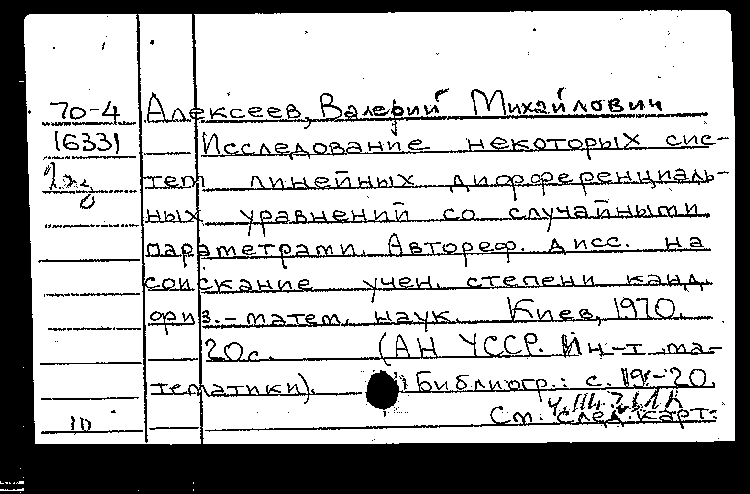 70-4 Алексеев, Валерий Михайлович
16331 Исследование некоторых сис-
2 экз тем линейных дифференциаль-
ных уравнений со случайными
параметрами. Автореф. дисс. на
соискание учен. степени канд.
физ.-матем. наук. Киев, 1970.
20с. (АН УССР. Ин-т ма-
тематики). Библиогр.: с. 19-20.
10 См. след. карт.